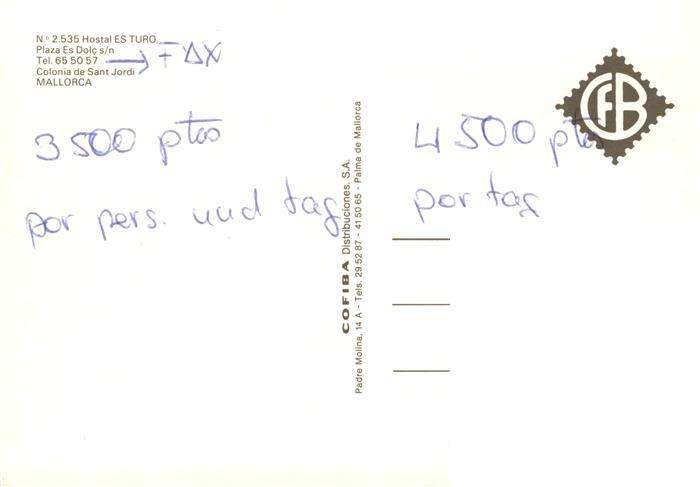 N.º 2.535 Hostal ES TURO
Plaza Es Dolç s/n
Tel. 65 50 57 → FAX
Colonia de Sant Jordi
MALLORCA
3 500 ptas
por pers. und tag
COFIBA Distribuciones, S.A.
Padre Molina, 14 A - Tels. 29 52 87 - 41 50 65 - Palma de Mallorca
CFB
4 500 pta
por tag